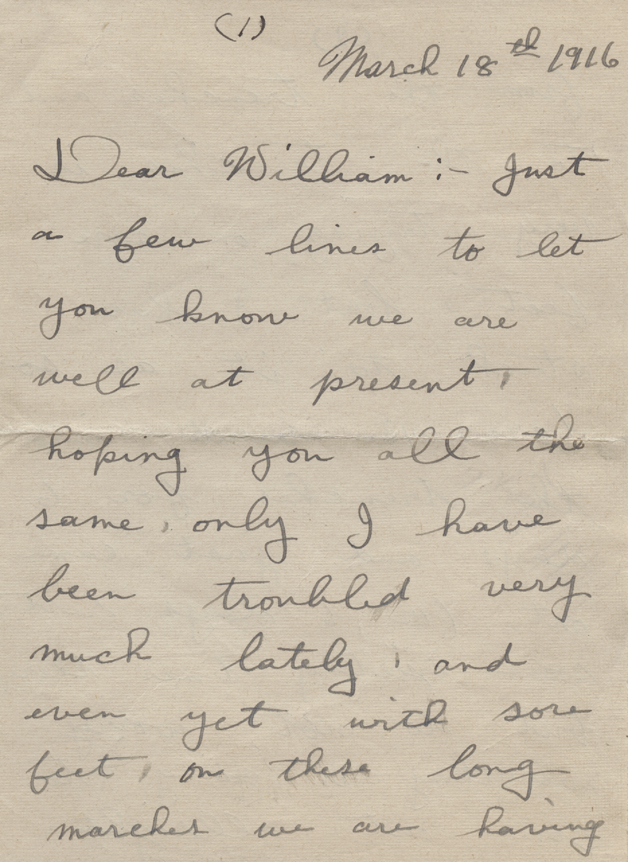 (1)
March 18th 1916
Dear William :- Just
a few lines to let
you know we are
well at present,
hoping you all the
same, only I have
been troubled very
much lately, and
even yet with sore
feet, on these long
marches we are having